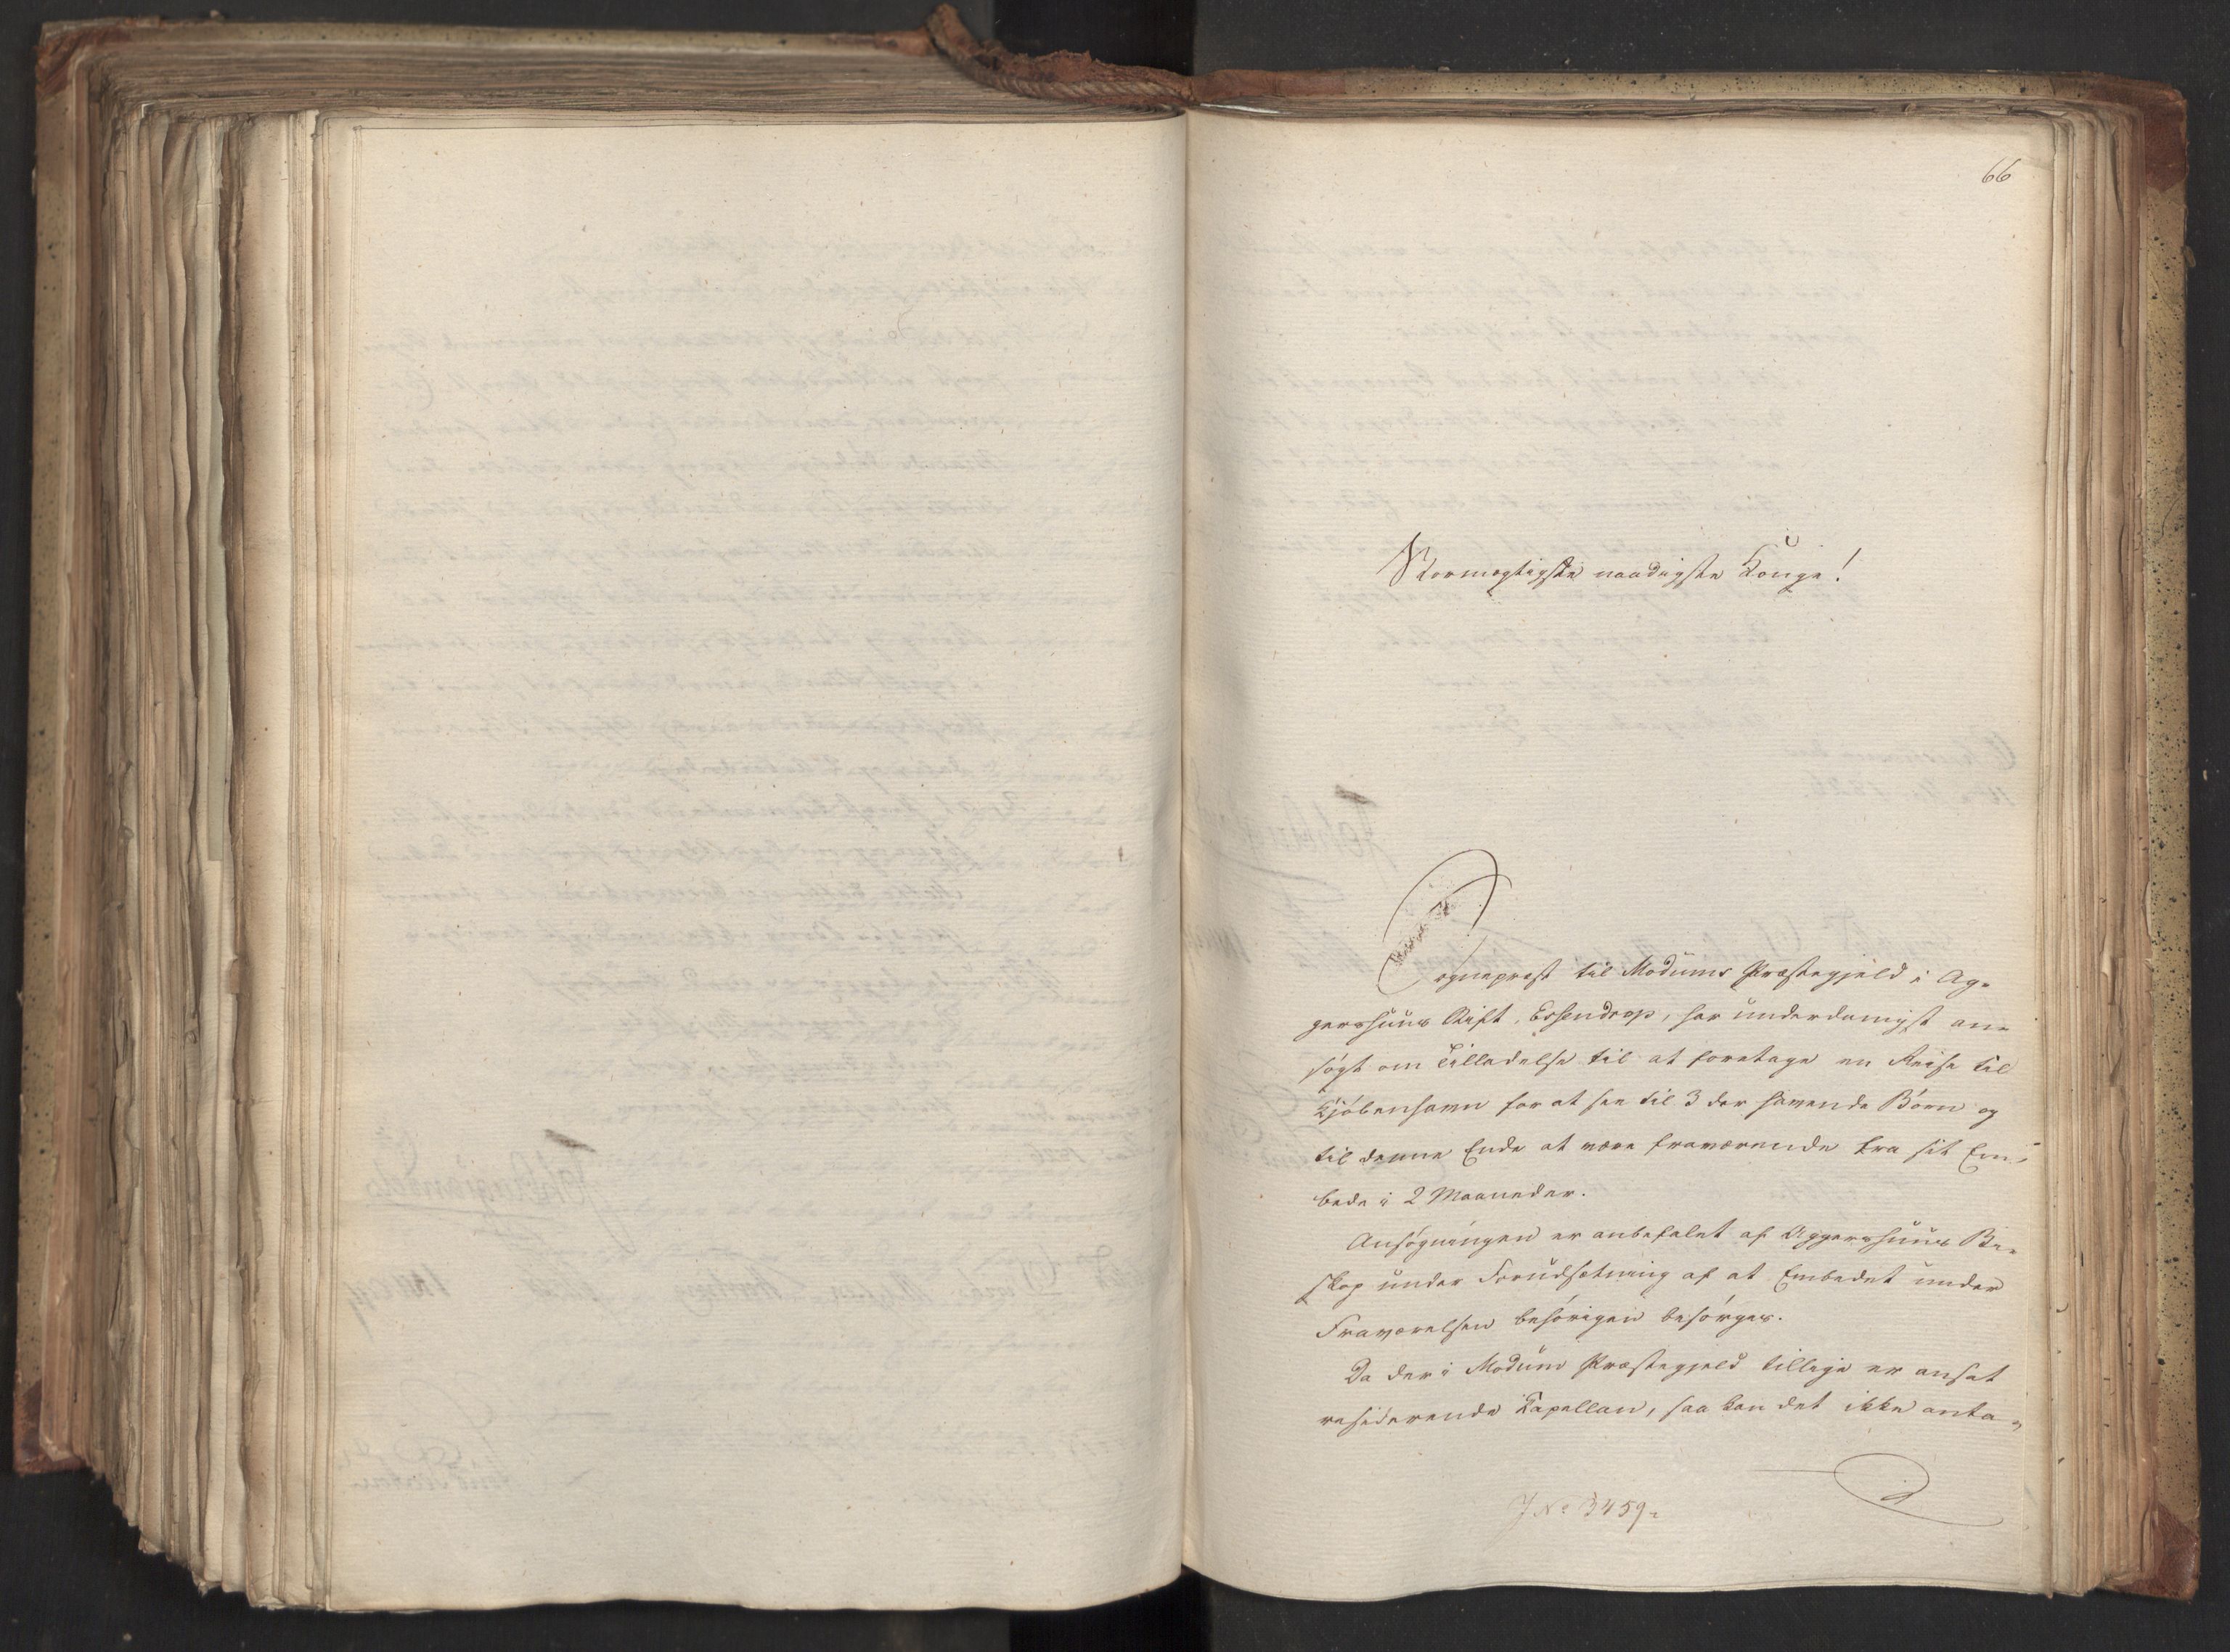 66
Stormægtigste naadigste Konge!
Sogneprest til Modums Præstegjeld i Ag-
gershuus Stift, Essendrop, har underdanigst an-
søgt om Tilladelse til at foretage en Reise til
Kjøbenhavn for at see til 3 der havende Børn og
til denne Ende at være fraværende fra sit Em-
bede i 2 Maaneder.
Ansøgningen er anbefalet af Aggershuus Bi-
skop under Forudsætning af at Embedet under
Fraværelsen behørigen besørges.
Da der i Modum Præstegjeld tillige er ansat
residerende Kapellan, saa kan det ikke anta-
J No 3459.